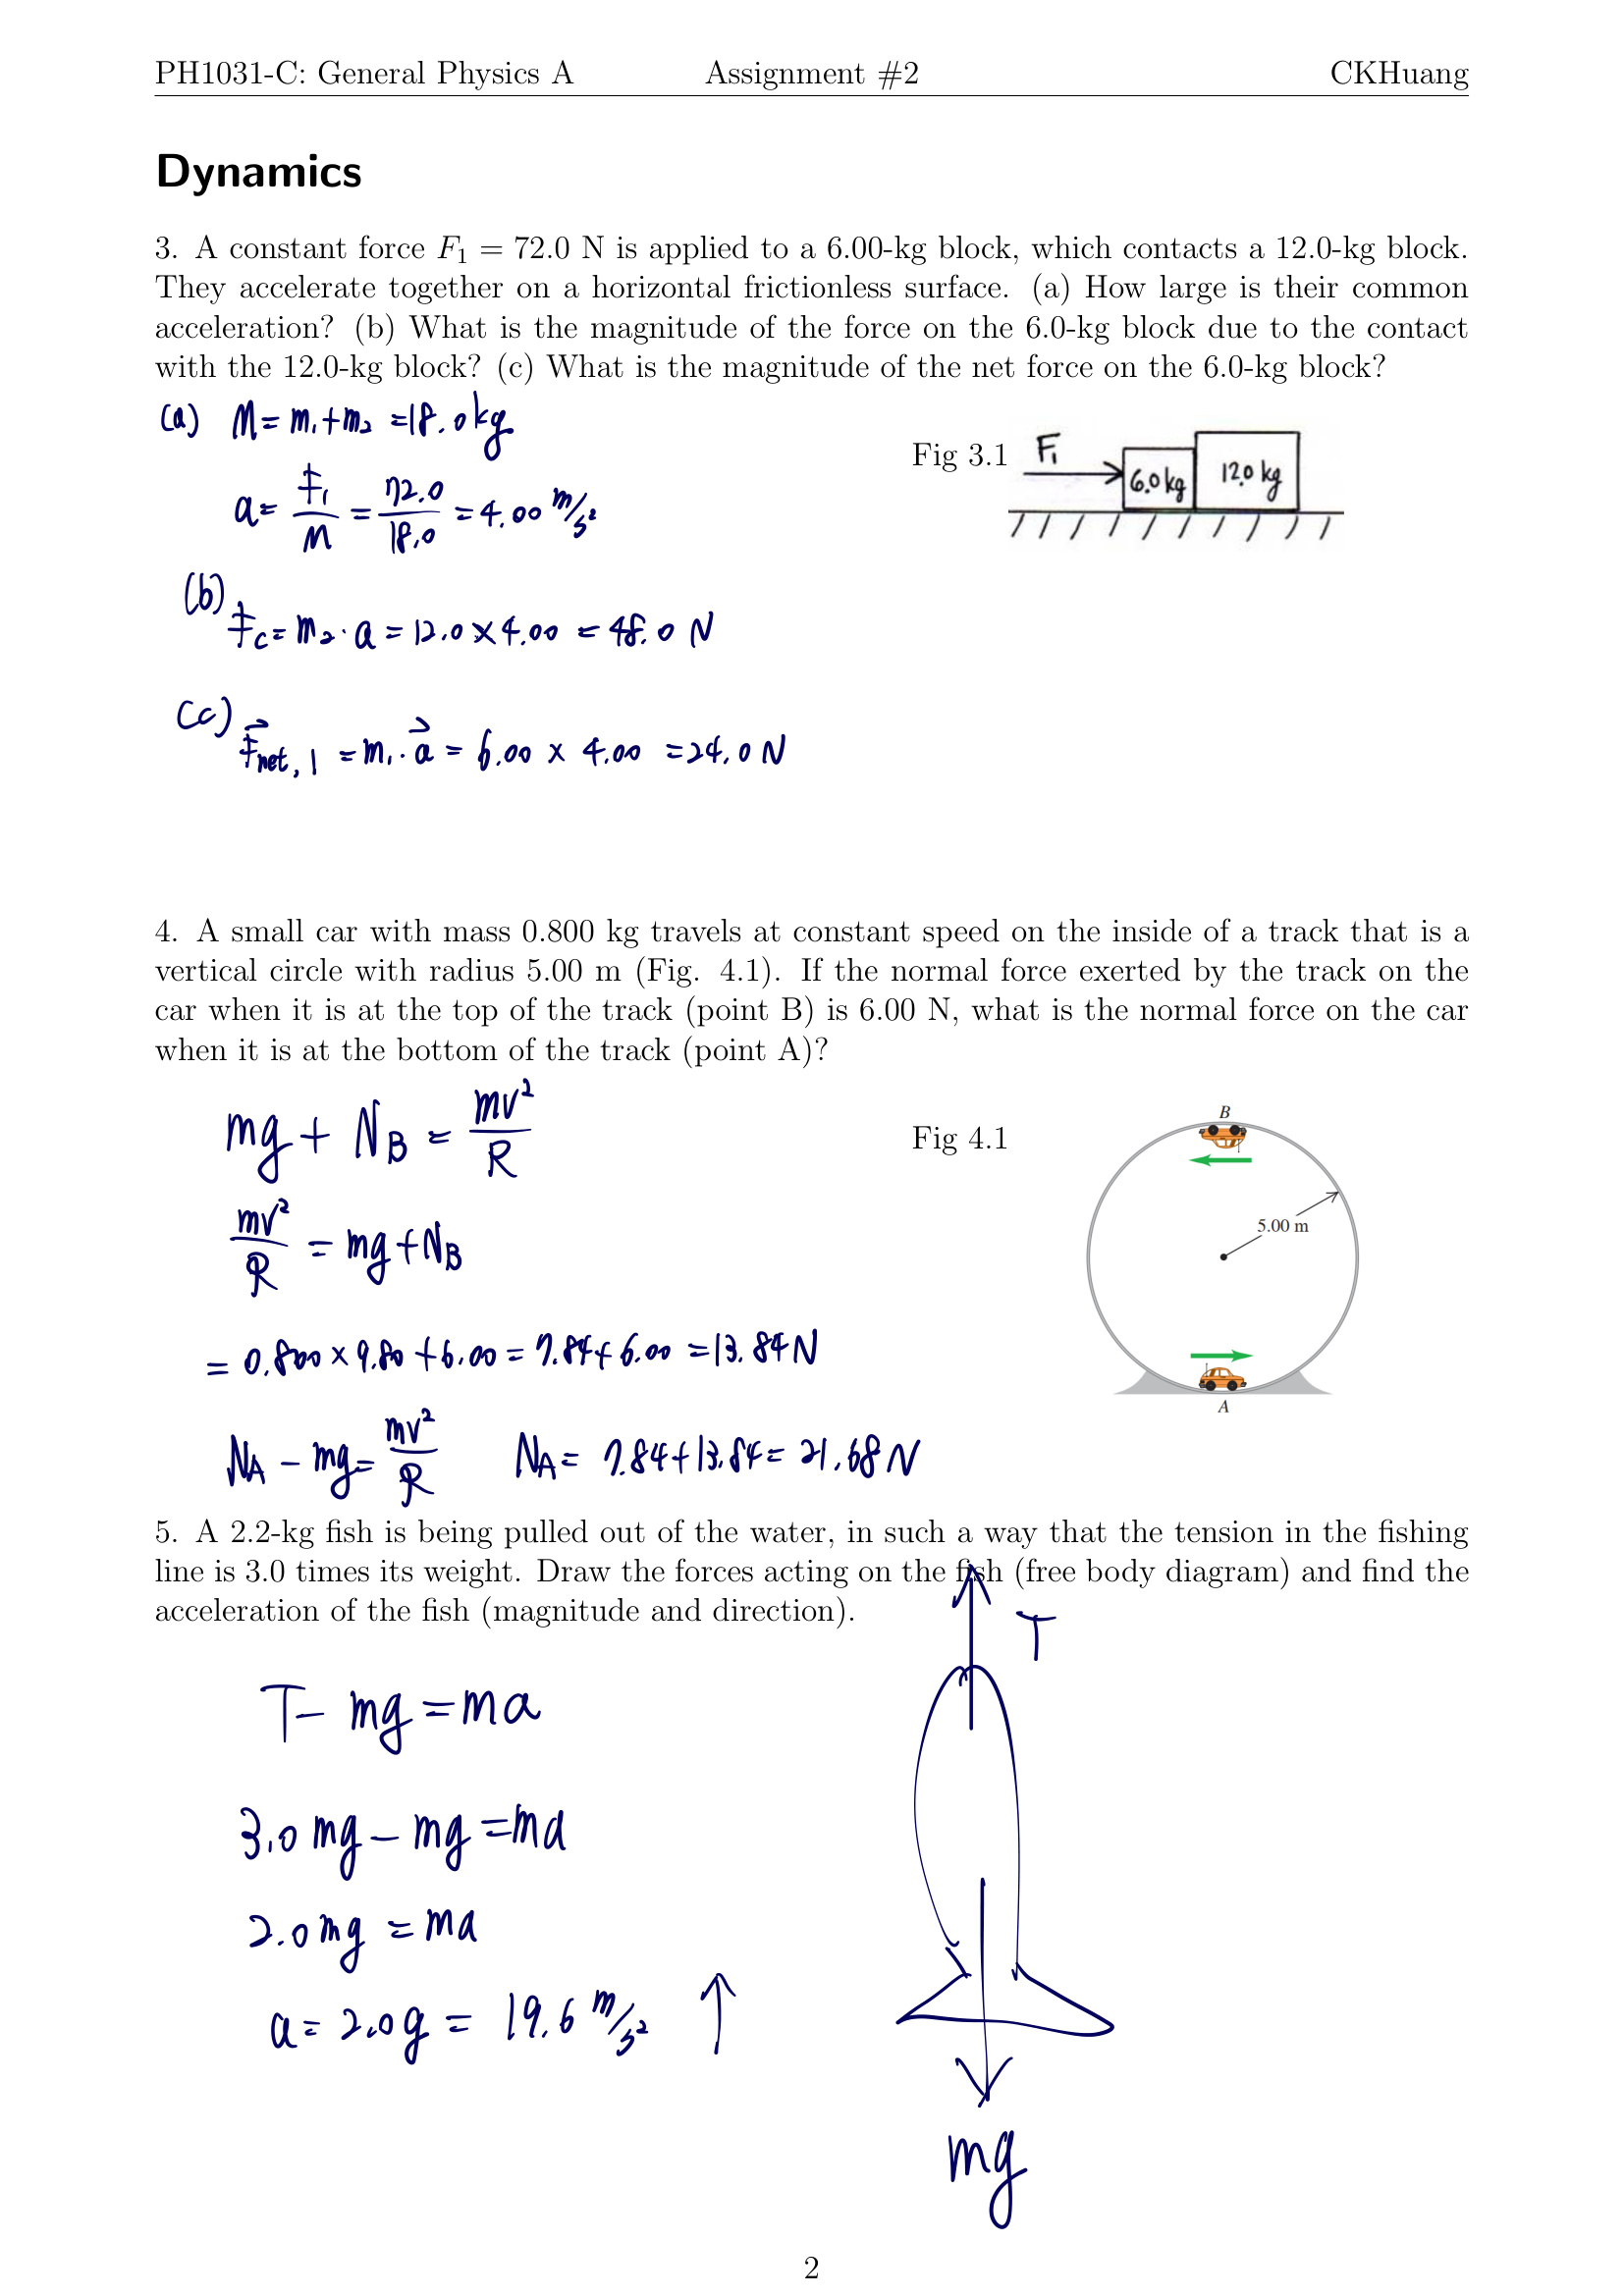 PH1031-C: General Physics A Assignment #2 CKHuang
Dynamics
3. A constant force F₁ = 72.0 N is applied to a 6.00-kg block, which contacts a 12.0-kg block.
They accelerate together on a horizontal frictionless surface. (a) How large is their common
acceleration? (b) What is the magnitude of the force on the 6.0-kg block due to the contact
with the 12.0-kg block? (c) What is the magnitude of the net force on the 6.0-kg block?
(a) M = m₁ + m₂ = 18.0 kg
Fig 3.1 F₁ 6.0 kg 12.0 kg
a = F₁/M = 72.0/18.0 = 4.00 m/s²
(b)
Fc = m₂ · a = 12.0 × 4.00 = 48.0 N
(c)
F⃗net, 1 = m₁ · a⃗ = 6.00 × 4.00 = 24.0 N
4. A small car with mass 0.800 kg travels at constant speed on the inside of a track that is a
vertical circle with radius 5.00 m (Fig. 4.1). If the normal force exerted by the track on the
car when it is at the top of the track (point B) is 6.00 N, what is the normal force on the car
when it is at the bottom of the track (point A)?
mg + N_B = mv²/R
Fig 4.1
B
5.00 m
A
mv²/R = mg + N_B
= 0.800 × 9.80 + 6.00 = 7.84 + 6.00 = 13.84 N
N_A − mg = mv²/R N_A = 7.84 + 13.84 = 21.68 N
5. A 2.2-kg fish is being pulled out of the water, in such a way that the tension in the fishing
line is 3.0 times its weight. Draw the forces acting on the fish (free body diagram) and find the
acceleration of the fish (magnitude and direction).
T
T − mg = ma
3.0 mg − mg = ma
2.0 mg = ma
a = 2.0 g = 19.6 m/s² ↑
mg
2